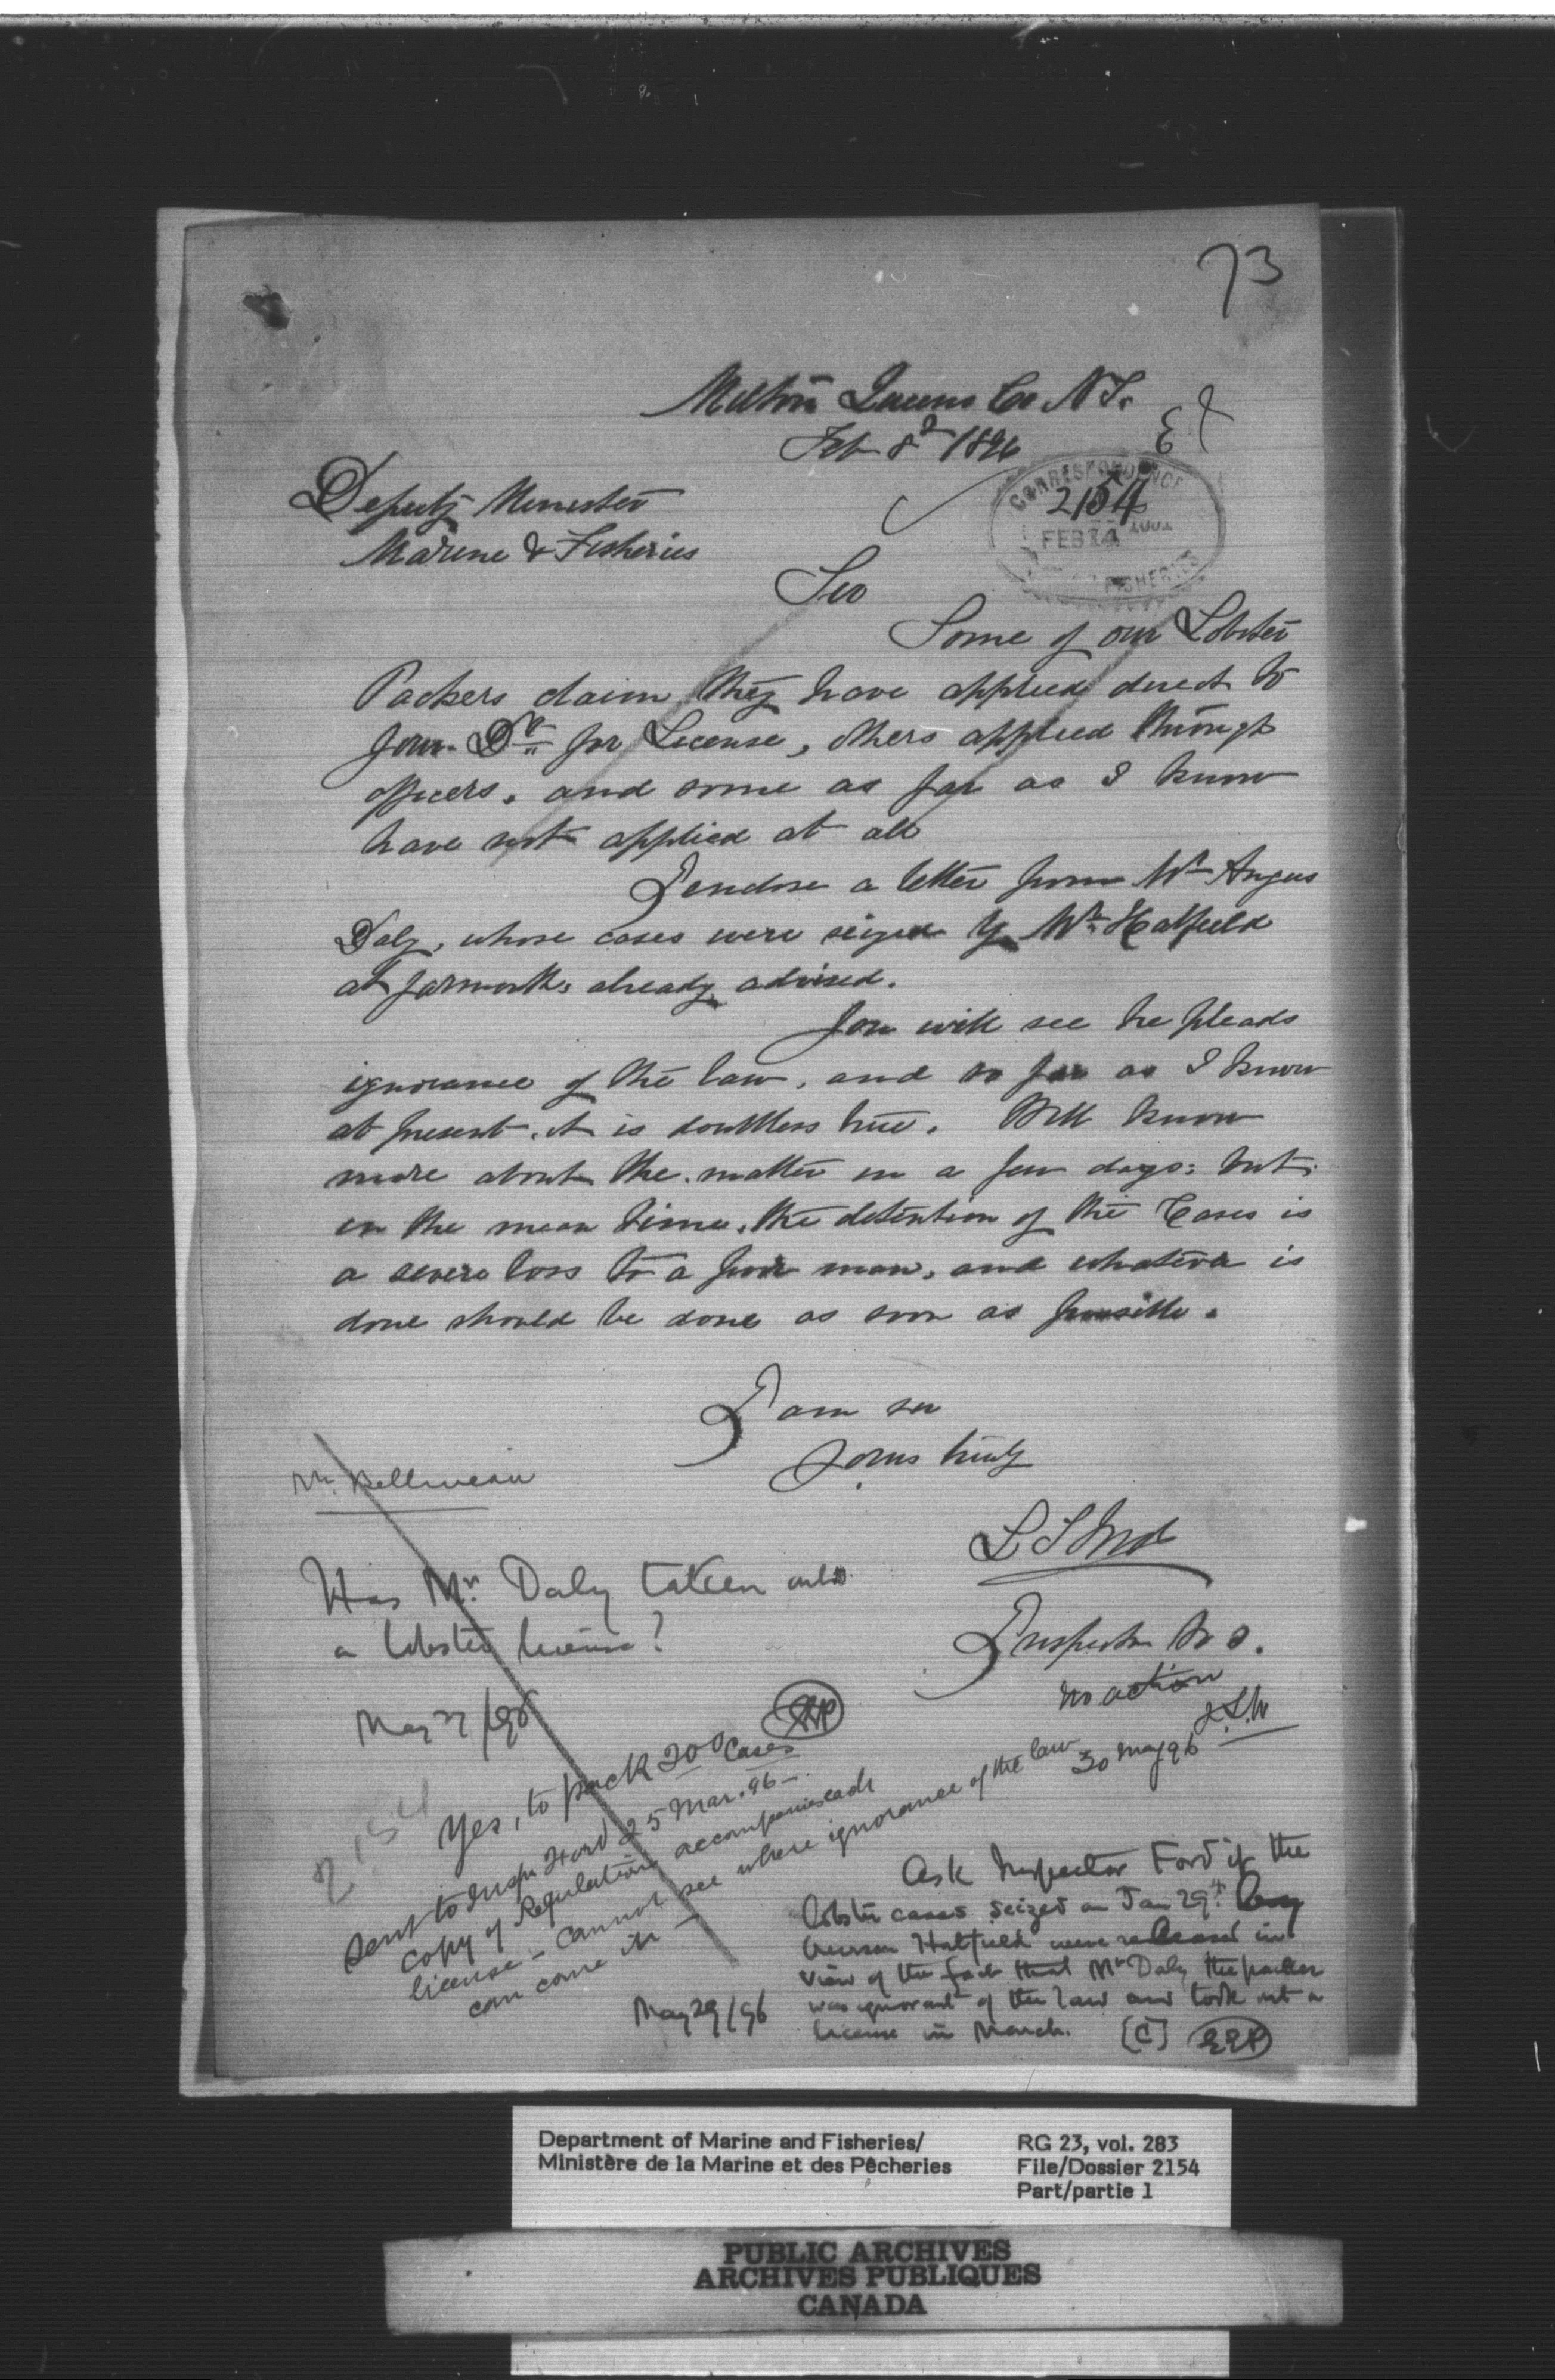 73
Milton Queens Co N.S.
Feb 8th 1896
Deputy Minister
Marine & Fisheries
CORRESPONDENCE
2154
FEB 14
FISHERIES
Sir
Some of our Lobster
Packers claim they have applied direct to
your Dpt for License, others applied through
officers, and some as far as I know
have not applied at all
I enclose a letter from Mr Angus
Daly, whose cases were seized by Mr Hatfield
at Yarmouth, already advised.
You will see he pleads
ignorance of the law, and so far as I know
at present, it is doubtless true. Will know
more about the matter in a few days: but
in the mean time, the detention of the Cases is
a severe loss to a poor man, and whatever is
done should be done as soon as possible.
I am sir
Yours truly
L S Ford
Inspector N S.
Mr. Belliveau
Has Mr. Daly taken out
a lobster license?
May 27/96
EEP
Yes, to pack 200 cases
sent to Insp. Ford 25 Mar. 96 -
copy of Regulation accompanies each
license - cannot see where ignorance of the law
can come in -
no action
30 May 96
2154
Ask Inspector Ford if the
lobster cases seized on Jan 29th by
Overseer Hatfield were released in
view of the fact that Mr Daly the packer
was ignorant of the law and took out a
license in March. [C] EEP
May 29/96
Department of Marine and Fisheries/
Ministère de la Marine et des Pêcheries
RG 23, vol. 283
File/Dossier 2154
Part/partie 1
PUBLIC ARCHIVES
ARCHIVES PUBLIQUES
CANADA